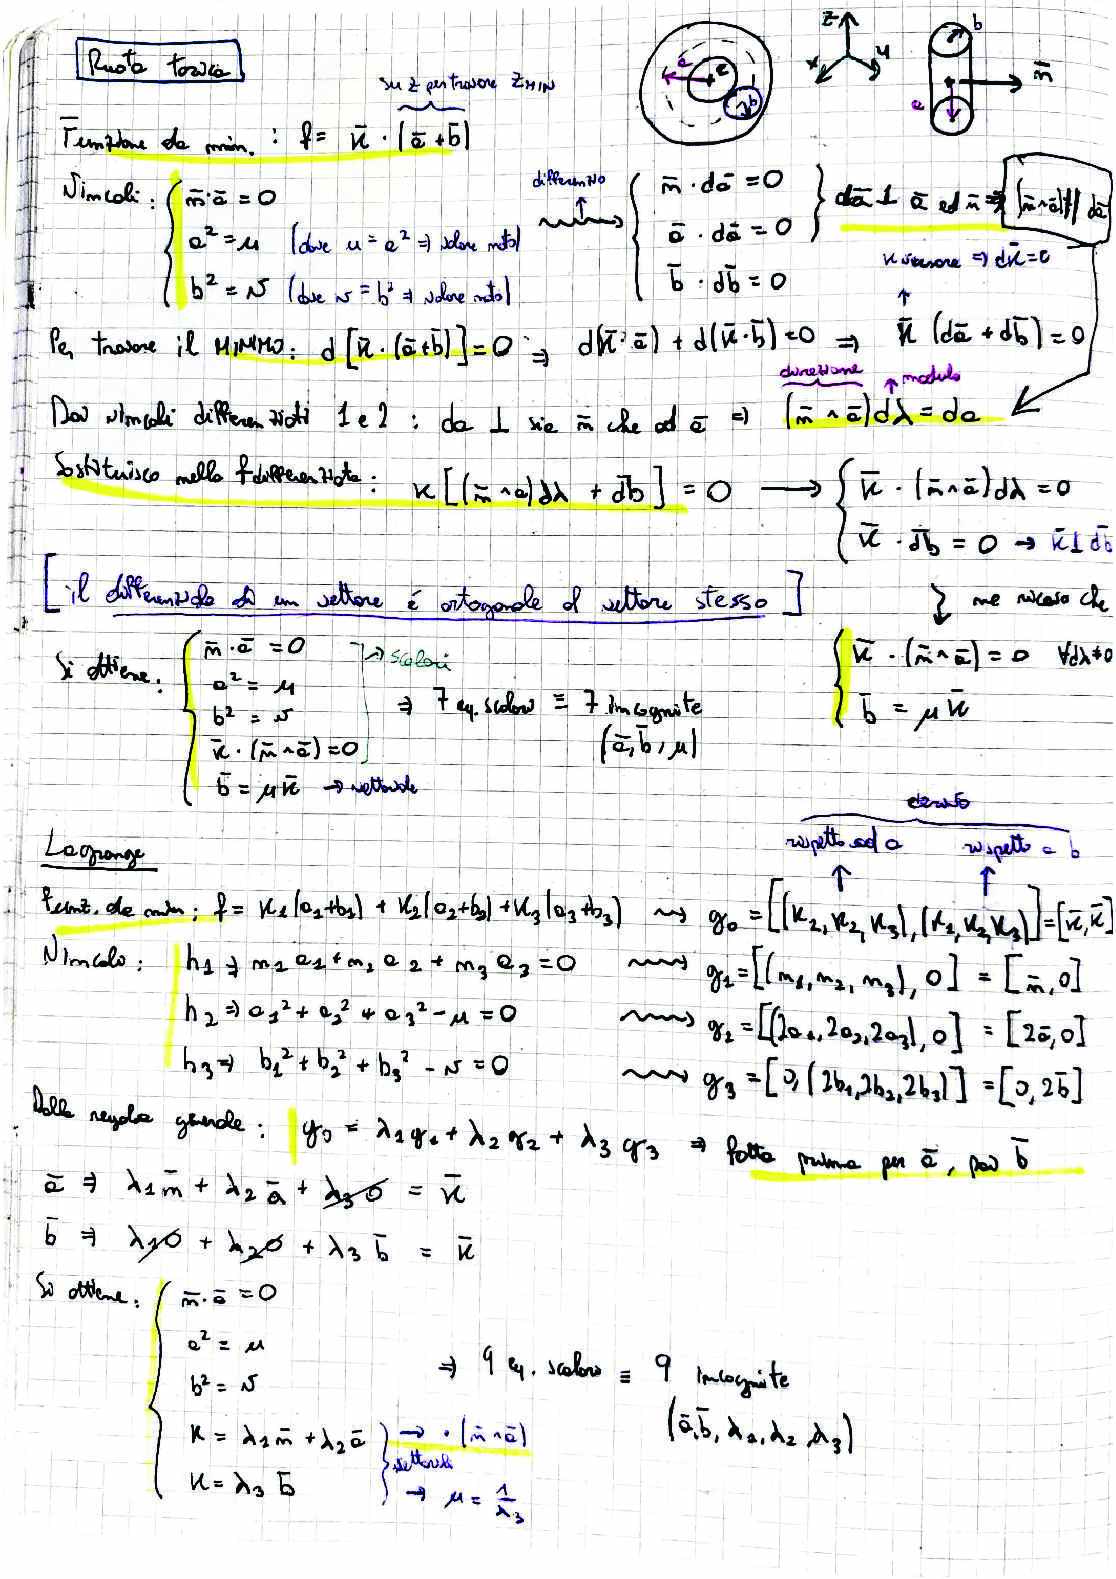 Ruota torica
su z per trovare ZMIN
z
x
y
a
e
b
n̄
Funzione da min. : f = k̄ · (ā + b̄)
Vincoli : { n̄·ā = 0
a² = μ (dove μ = a² ⇒ valore noto)
b² = ν (dove ν = b² ⇒ valore noto)
differenzio
n̄ · dā = 0
ā · dā = 0
b̄ · db̄ = 0
dā ⊥ ā ed n̄ ⇒ (n̄ ∧ ā) // dā
k versore ⇒ dk̄ = 0
Per trovare il MINIMO: d[k̄ · (ā+b̄)] = 0 ⇒ d(k̄·ā) + d(k̄·b̄) = 0 ⇒ k̄ (dā + db̄) = 0
direzione
modulo
Dai vincoli differenziati 1 e 2 : da ⊥ sia n̄ che ad ā ⇒ (n̄ ∧ ā) dλ = da
Sostituisco nella f differenziata : k [(n̄ ∧ a) dλ + db̄] = 0 → { k̄ · (n̄ ∧ ā) dλ = 0
k̄ · db̄ = 0 → k̄ ⊥ db̄
[il differenziale di un vettore é ortogonale al vettore stesso]
me ricavo che
k̄ · (n̄ ∧ ā) = 0 ∀dλ≠0
b̄ = μ k̄
Si ottiene : { n̄ · ā = 0
a² = μ
b² = ν
k̄ · (n̄ ∧ ā) = 0
b̄ = μ k̄ → vettoriale
→ scalari
⇒ 7 eq. scalari ≡ 7 incognite
(ā, b̄, μ)
Lagrange
derivo
rispetto ad a
rispetto a b
Funz. da min : f = k₁(a₁+b₁) + k₂(a₂+b₂) + k₃(a₃+b₃) ⇝ g₀ = [(k₁, k₂, k₃), (k₁, k₂, k₃)] = [k̄, k̄]
Vincolo : h₁ ⇒ n₁a₁ + n₂a₂ + n₃a₃ = 0 ⇝ g₁ = [(n₁, n₂, n₃), 0] = [n̄, 0]
h₂ ⇒ a₁² + a₂² + a₃² - μ = 0 ⇝ g₂ = [(2a₁, 2a₂, 2a₃), 0] = [2ā, 0]
h₃ ⇒ b₁² + b₂² + b₃² - ν = 0 ⇝ g₃ = [0, (2b₁, 2b₂, 2b₃)] = [0, 2b̄]
Dalla regola generale : g₀ = λ₁g₁ + λ₂g₂ + λ₃g₃ ⇒ fatta prima per ā, poi b̄
ā ⇒ λ₁n̄ + λ₂ā + λ₃0 = k̄
b̄ ⇒ λ₁0 + λ₂0 + λ₃b̄ = k̄
Si ottiene : { n̄·ā = 0
a² = μ
b² = ν
k = λ₁n̄ + λ₂ā
k = λ₃ b̄
→ · (n̄ ∧ ā)
vettoriali
→ μ = 1/λ₃
⇒ 9 eq. scalari ≡ 9 incognite
(ā, b̄, λ₁, λ₂, λ₃)